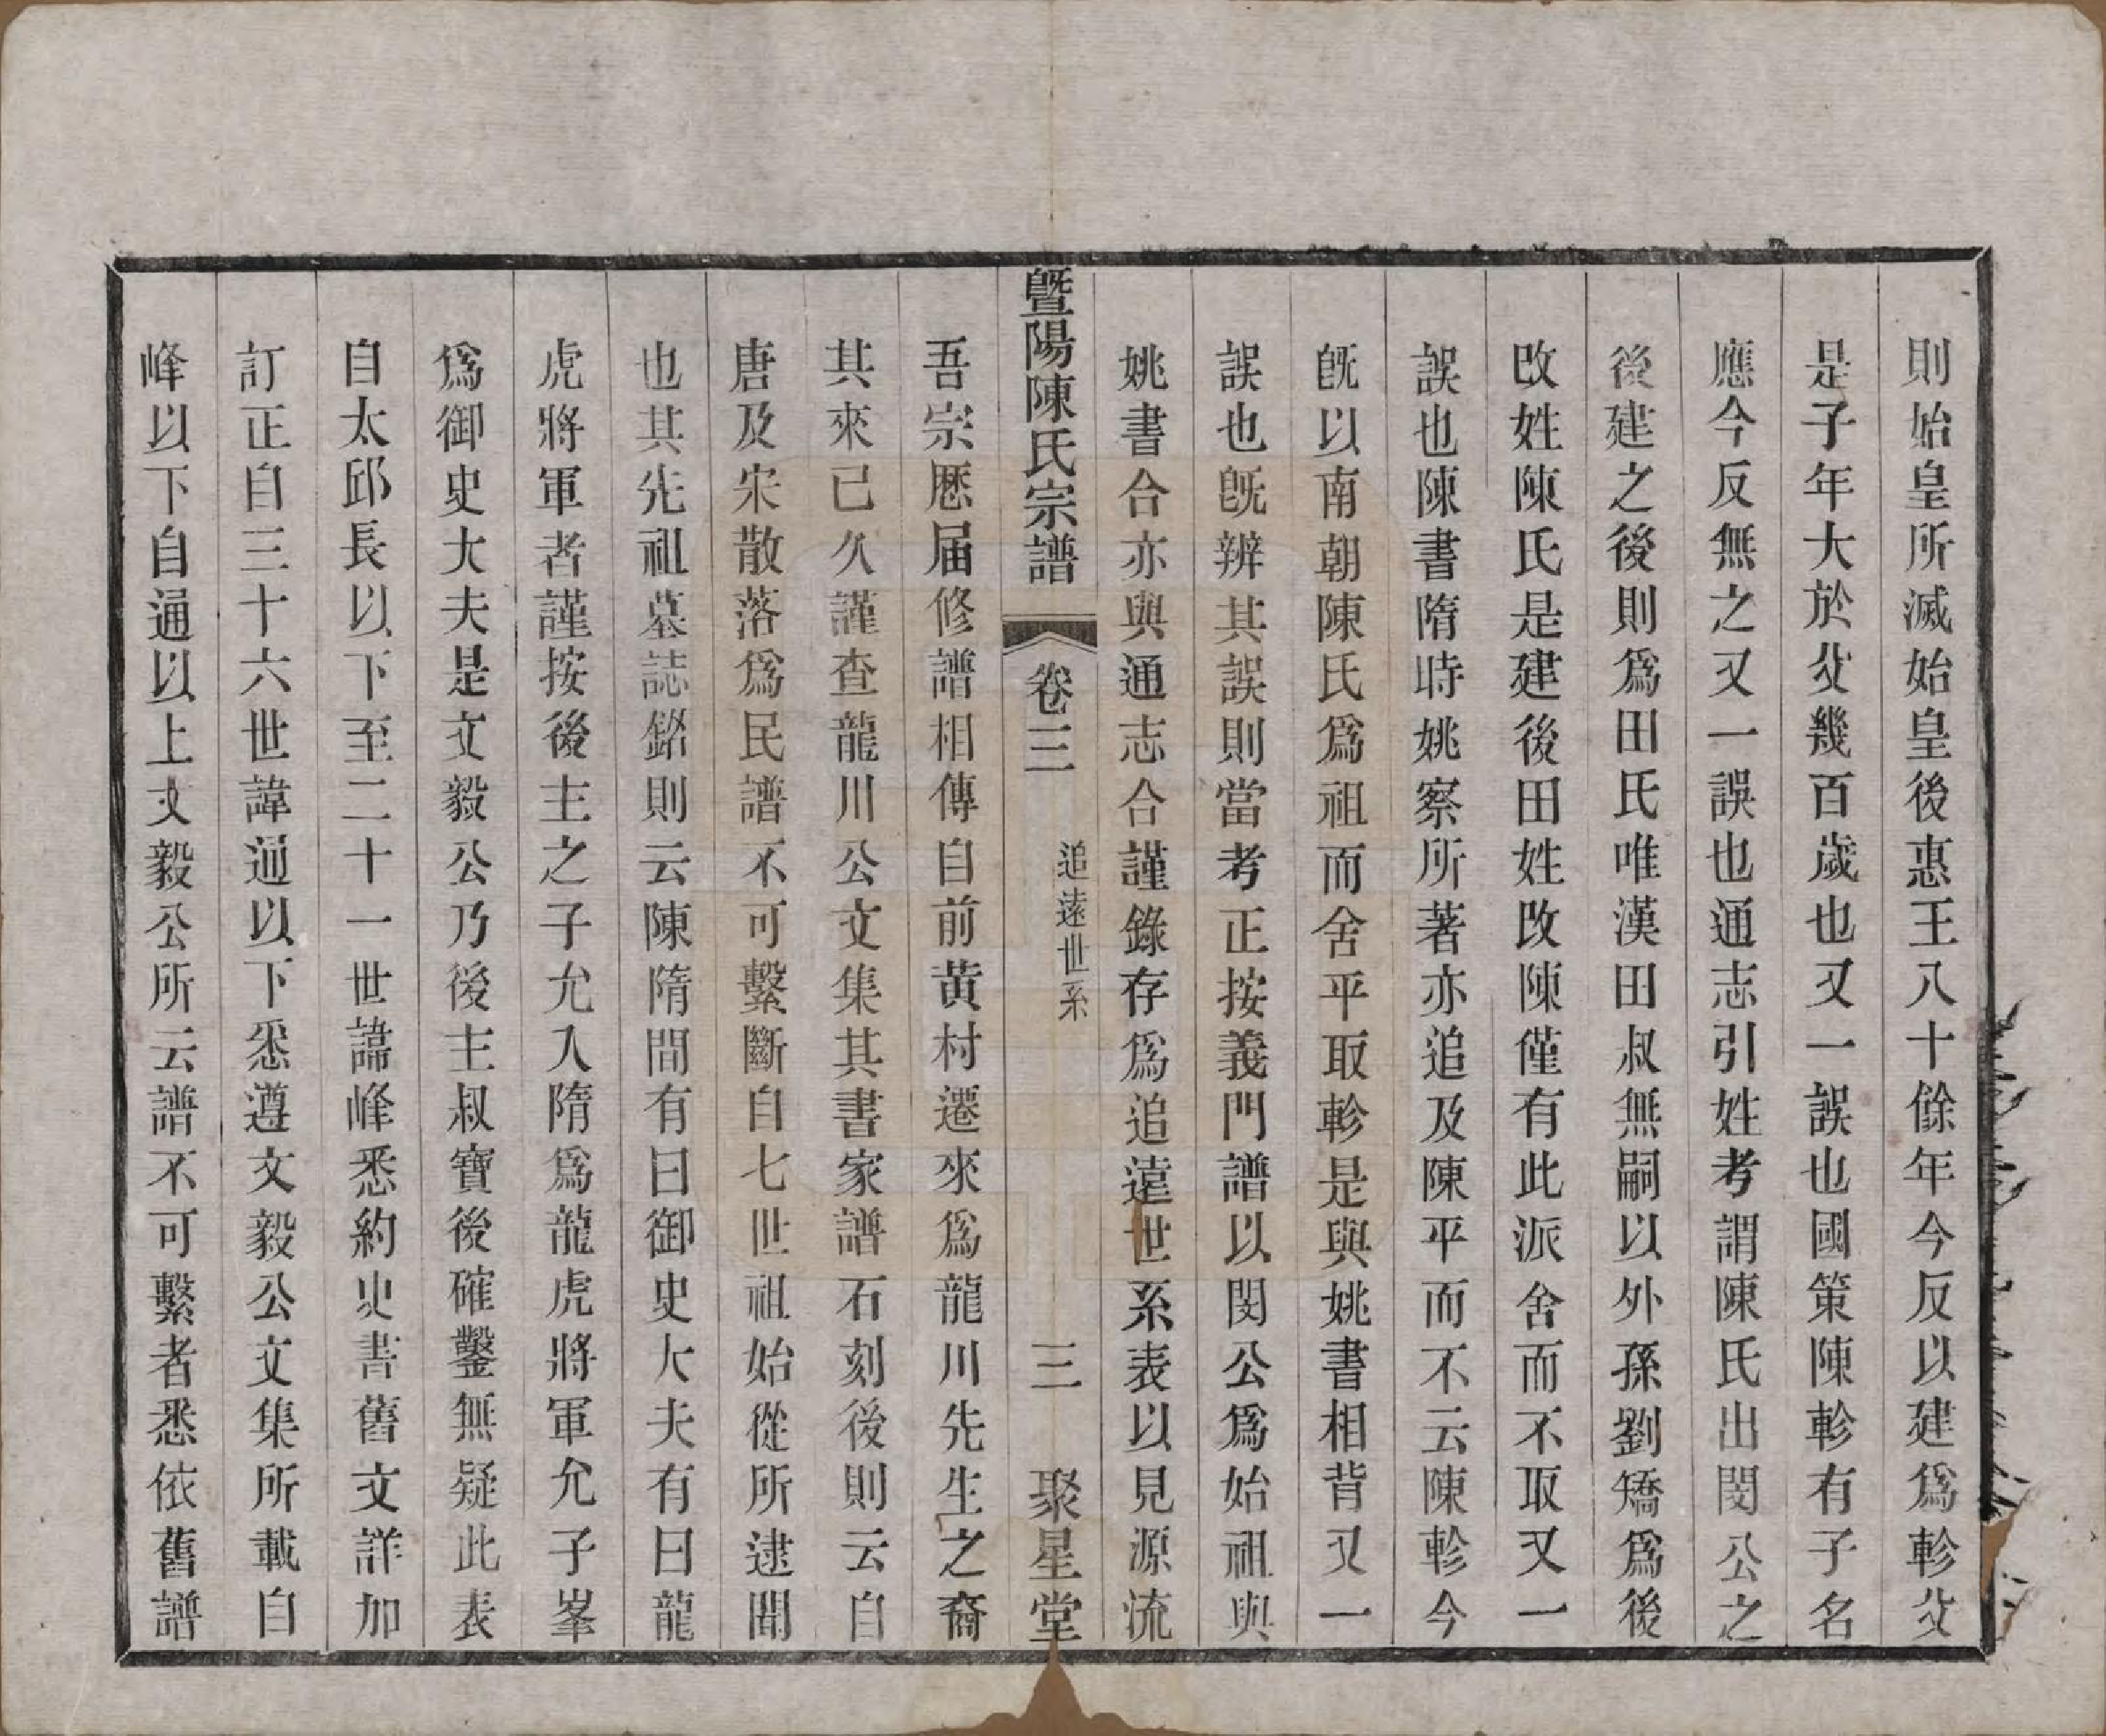 則始皇所滅始皇後惠王八十餘年今反以建爲軫父
是子年大於父幾百歲也又一誤也國策陳軫有子名
應今反無之又一誤也通志引姓考謂陳氏出閔公之
後建之後則爲田氏唯漢田叔無嗣以外孫劉矯爲後
改姓陳氏是建後田姓改陳僅有此派舍而不取又一
誤也陳書隋時姚察所著亦追及陳平而不云陳軫今
旣以南朝陳氏爲祖而舍平取軫是與姚書相背又一
誤也旣辨其誤則當考正按義門譜以閔公爲始祖與
姚書合亦與通志合謹錄存爲追遠世系表以見源流
曁陽陳氏宗譜 卷三 追遠世系 三 聚星堂
吾宗歷届修譜相傳自前黄村遷來爲龍川先生之裔
其來已久謹查龍川公文集其書家譜石刻後則云自
唐及宋散落爲民譜不可繫斷自七世祖始從所逮聞
也其先祖墓誌銘則云陳隋間有曰御史大夫有曰龍
虎將軍者謹按後主之子允入隋爲龍虎將軍允子峯
爲御史大夫是文毅公乃後主叔寶後確鑿無疑此表
自太邱長以下至二十一世諱峰悉約史書舊文詳加
訂正自三十六世諱通以下悉遵文毅公文集所載自
峰以下自通以上文毅公所云譜不可繫者悉依舊譜